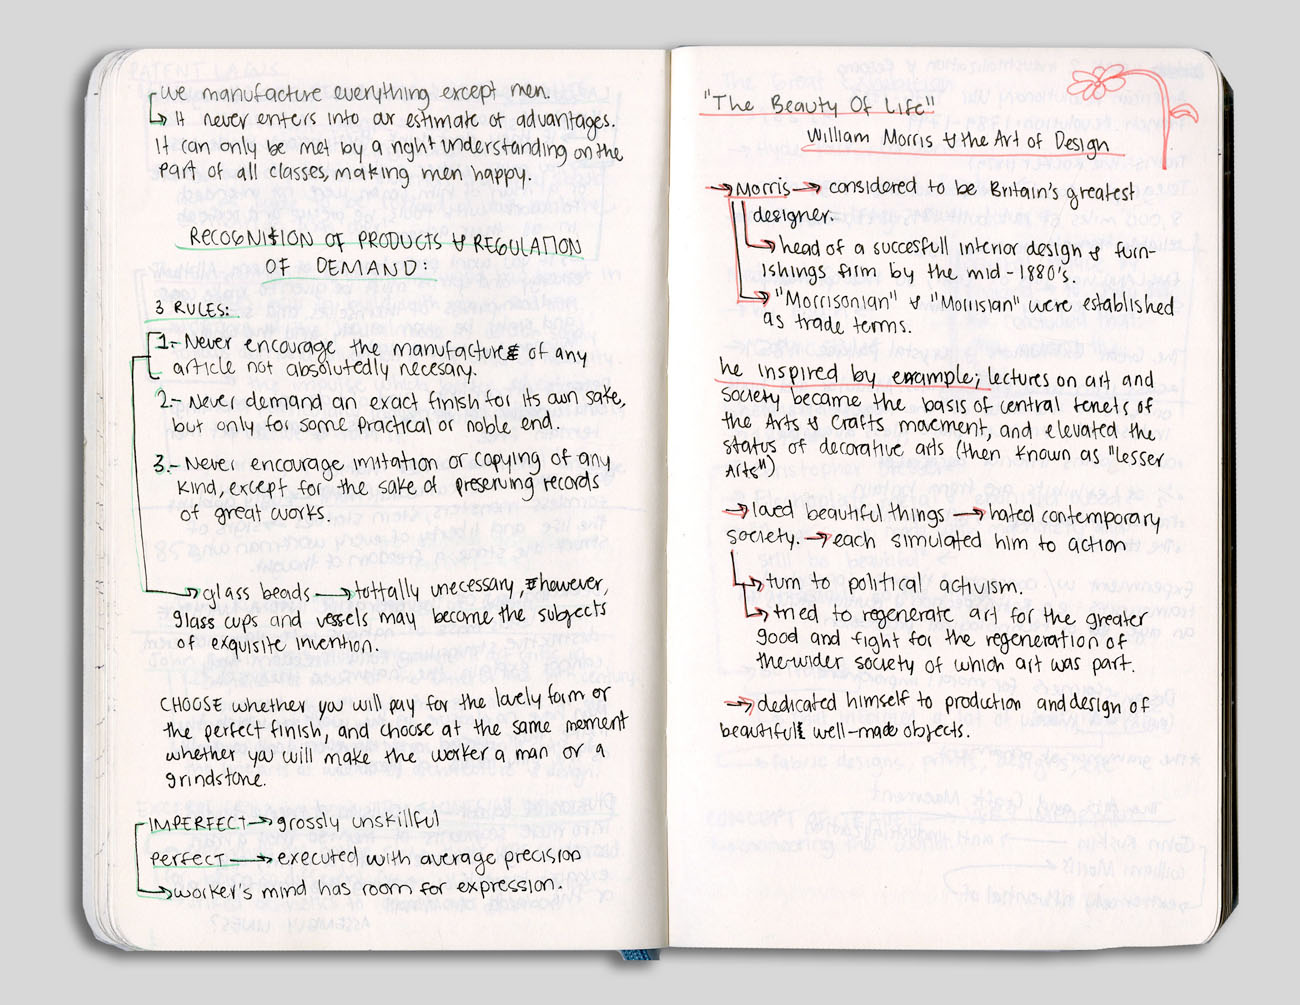 we manufacture everything except men.
→ It never enters into our estimate of advantages.
It can only be met by a right understanding on the
part of all classes, making men happy.
RECOGNISION OF PRODUCTS & REGULATION
OF DEMAND:
3 RULES:
1.- Never encourage the manufacture of any
article not absolutedly necesary.
2.- Never demand an exact finish for its own sake,
but only for some practical or noble end.
3.- Never encourage imitation or copying of any
kind, except for the sake of preserving records
of great works.
→ glass beads → tottally unecessary, however,
glass cups and vessels may become the subjects
of exquisite invention.
CHOOSE whether you will pay for the lovely form or
the perfect finish, and choose at the same moment
whether you will make the worker a man or a
grindstone.
IMPERFECT → grossly unskillful
perfect → executed with average precision
→ worker's mind has room for expression.
"The Beauty Of Life"
William Morris & the Art of Design
→ Morris → considered to be Britain's greatest
designer.
→ head of a succesfull interior design & furn-
ishings firm by the mid-1880's.
→ "Morrisonian" & "Morrisian" were established
as trade terms.
he inspired by example; lectures on art and
society became the basis of central tenets of
the Arts & Crafts movement, and elevated the
status of decorative arts (then known as "Lesser
Arts")
→ loved beautiful things → hated contemporary
society. → each simulated him to action
→ turn to political activism.
→ tried to regenerate art for the greater
good and fight for the regeneration of
the wider society of which art was part.
→ dedicated himself to production and design of
beautiful well-made objects.